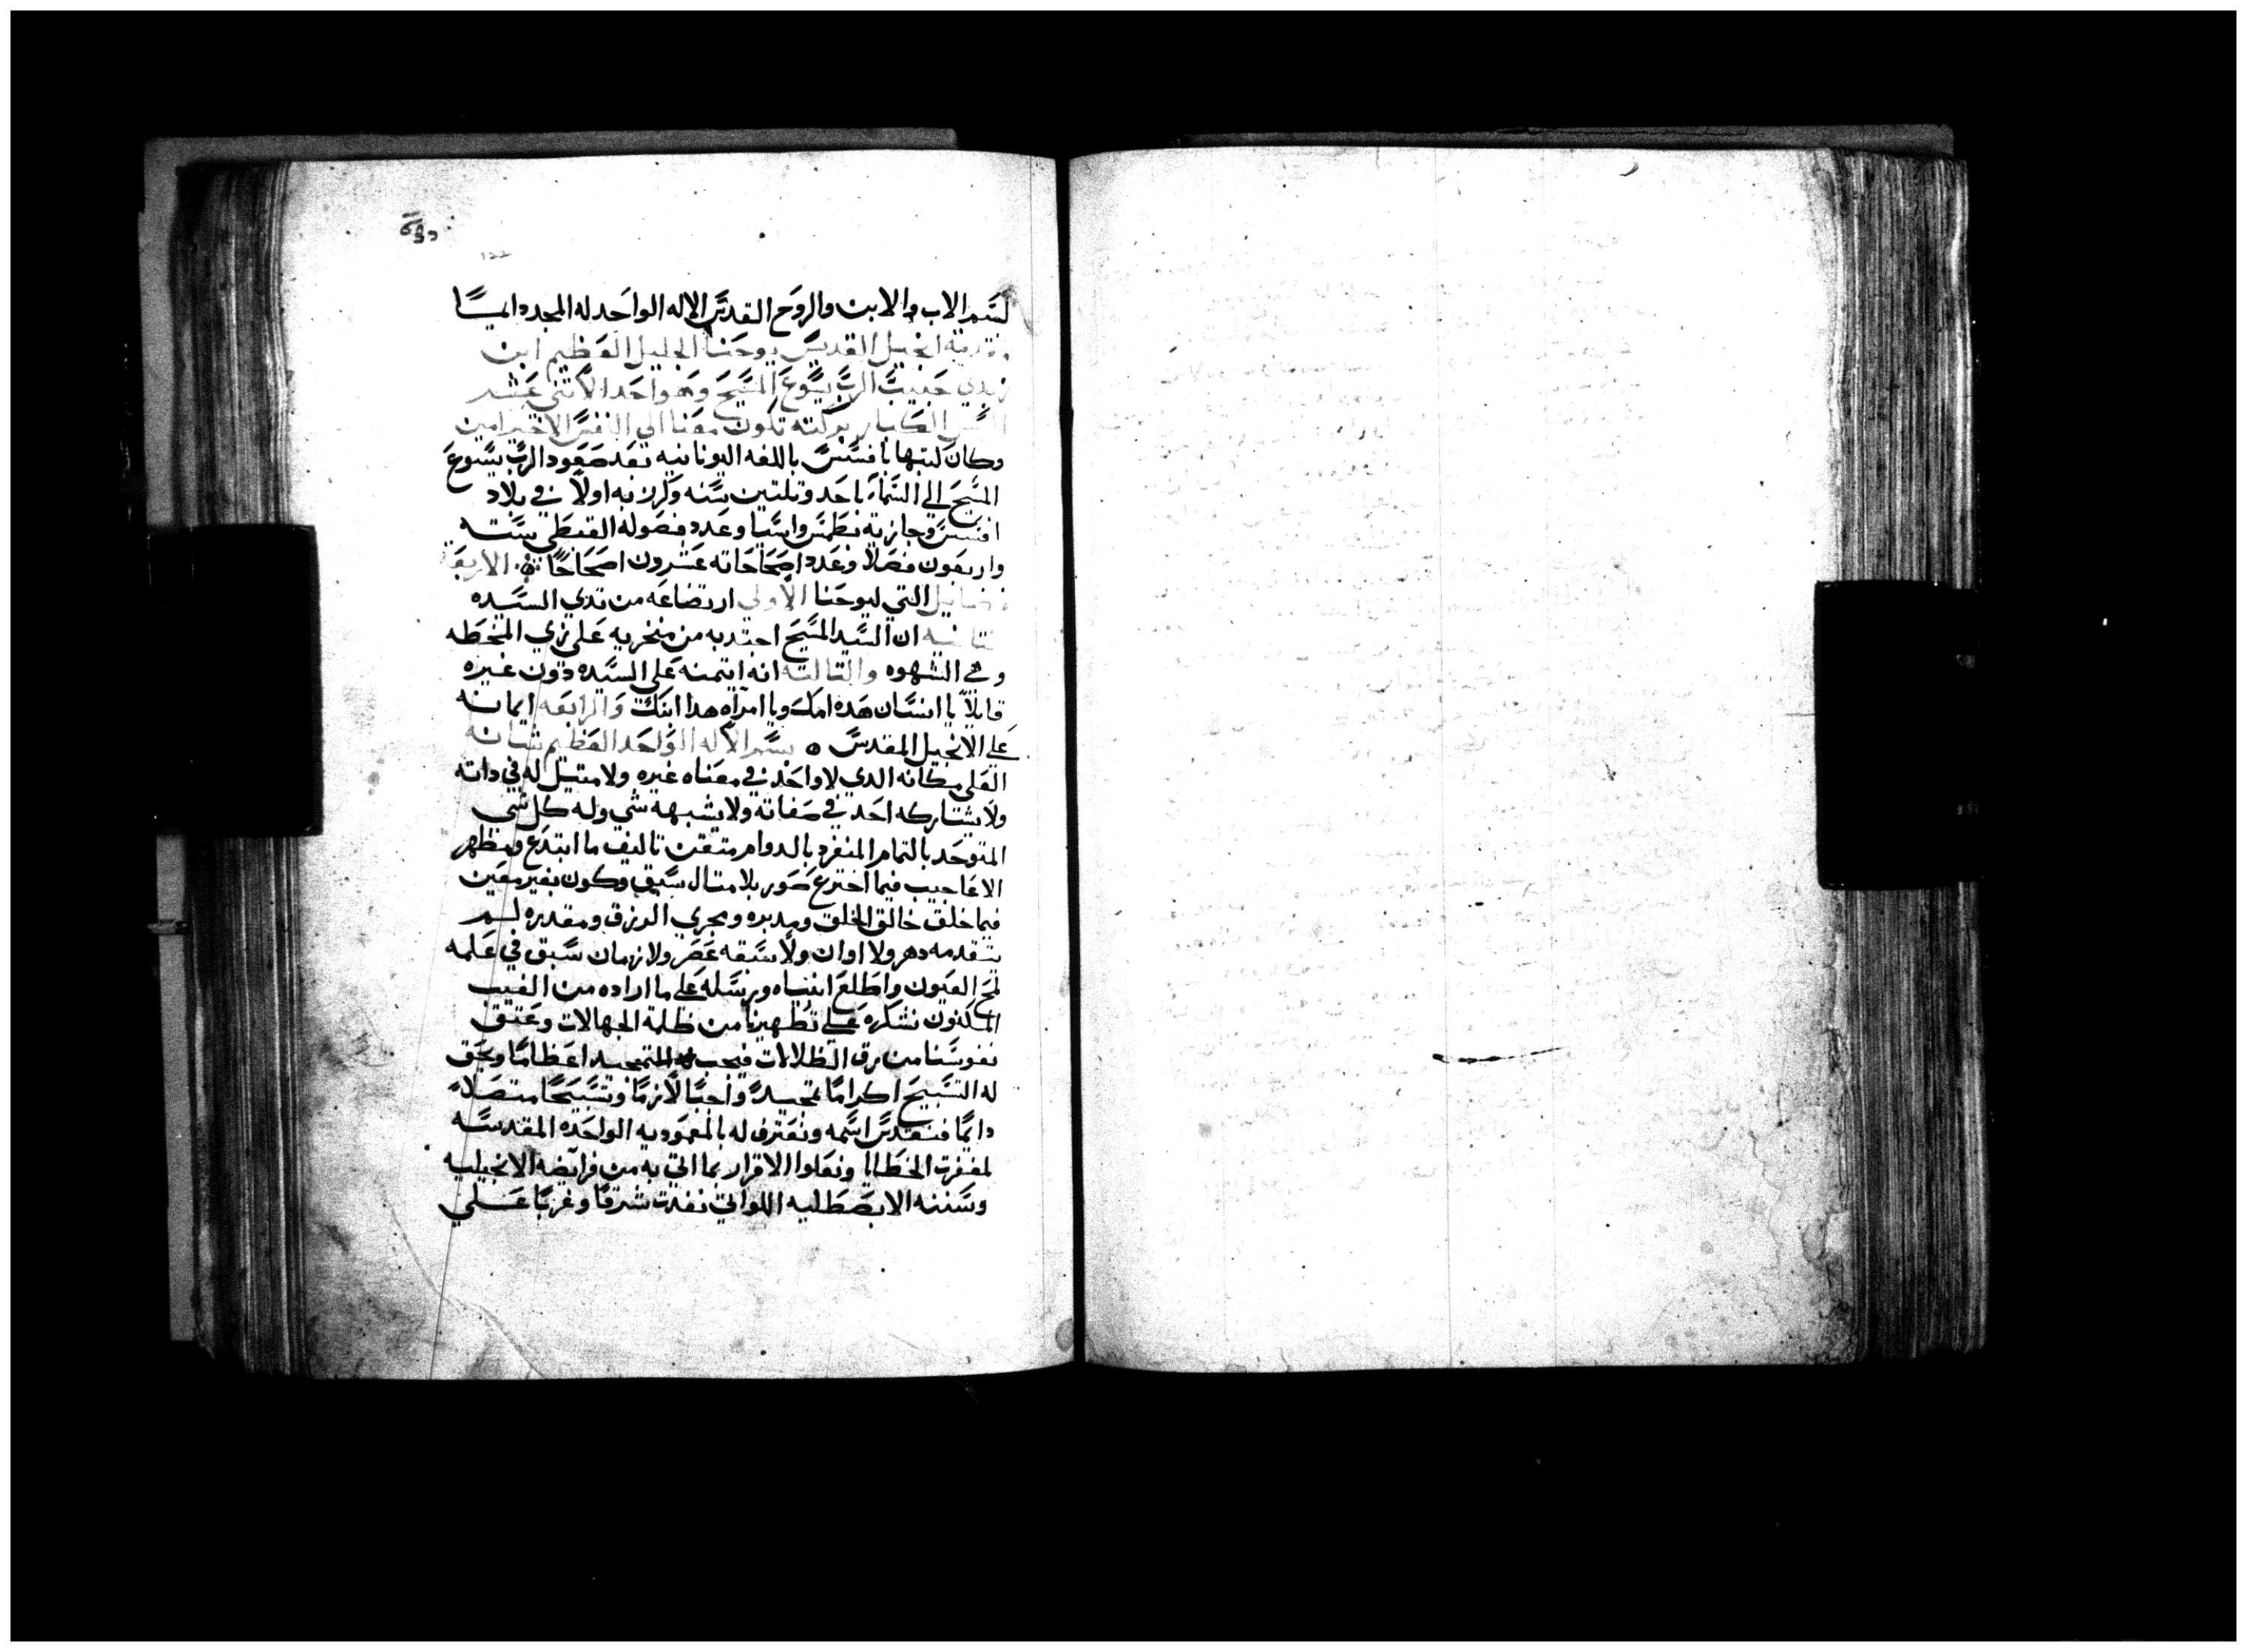 بسم الاب والابن والروح القدس الاله الواحد له المجد دايمًا
مقدمة انجيل القديس يوحنا الجليل العظيم ابن
زبدي حبيب الرب يسوع المسيح وهو احد الاتني عشر
الكبار بركته تكون معنا الي النفس الاخير امين
وكان كتبها بافسس باللغه اليونانيه بعد صعود الرب يسوع
المسيح الي السماء باحد وتلتين سنه وكرز به اولاً في بلاد
افسس وجازيه بطمس واسيا وعدد فصوله القبطي سته
واربعون فصلاً وعدد اصحاحاته عشرون اصحاحًا الاربعة
فضايل التي ليوحنا الاولي ارتضاعه من تدي السيده
تانيه ان السيد المسيح اجتدبه من منخريه علي زي المخطه
وهي الشهوه والتالته انه ايتمنه علي السيده دون غيره
قايلاً يا انسان هده امك ويا امراه هدا ابنك والرابعه ايمانه
علي الانجيل المقدس ه بسم الاله الواحد العظيم شانه
العلي مكانه الدي لا واحد في معناه غيره ولا متيل له في داته
ولا يشاركه احد في صفاته ولا يشبهه شي وله كل شي
المتوحد بالتمام المنفرد بالدوام متقن تاليف ما ابتدع ومظهر
الاعاجيب فيما اخترع صور بلا متال سبق وكون بغير معين
فيما خلق خالق الخلق ومدبره ومجري الرزق ومقدره لم
يتقدمه دهر ولا اوان ولا سبقه عصر ولا زمان سبق في علمه
لمح العيون واطلع انبياه ورسله علي ما اراده من الغيب
المكنون نشكره علي تطهيرنا من ظلمة الجهالات وعتق
نفوسنا من رق الظلالات فيجب له التمجيد اعظامًا ويحق
له التسبيح اكرامًا تمجيدً واجبًا لازمًا وتسبيحًا متصلاً
دايمًا فنقدس اسمه ونعترف له بالمعموديه الواحده المقدسه
لمغفرت الخطايا ونعاود الاقرار بما اتي به من فرايضه الانجيليه
وسننه الابصطليه اللواتي نفدت شرقًا وغربًا علي